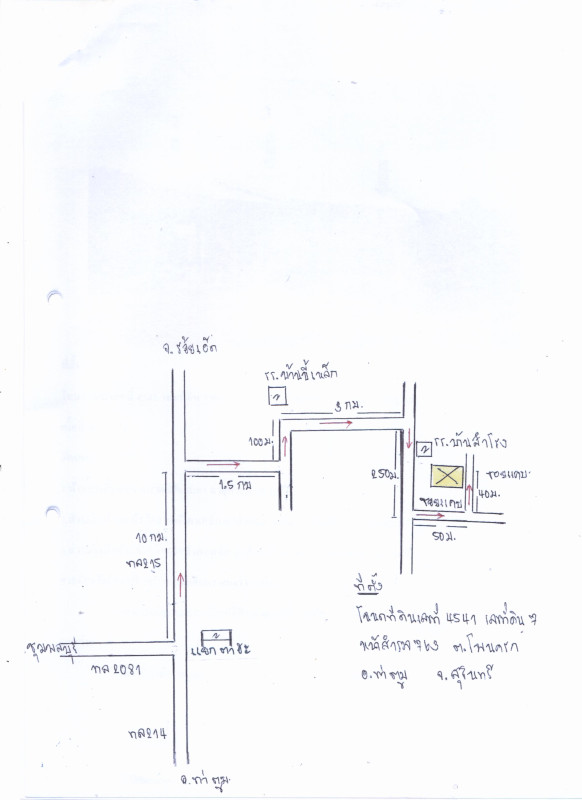 จ.ร้อยเอ็ด
รร.บ้านขี้เหล็ก
3 กม.
100ม.
รร.บ้านสำโรง
1.5 กม
250ม.
ซอยแคบ
ซอยแคบ
40ม.
50 ม.
10 กม.
ทล215
ที่ตั้ง
โฉนดที่ดินเลขที่ 4541 เลขที่ดิน 7
หน้าสำรวจ 763 ต.โพนครก
อ.ท่าตูม จ.สุรินทร์
ชุมพลบุรี
แยกตาฮะ
ทล 2081
ทล214
อ.ท่าตูม